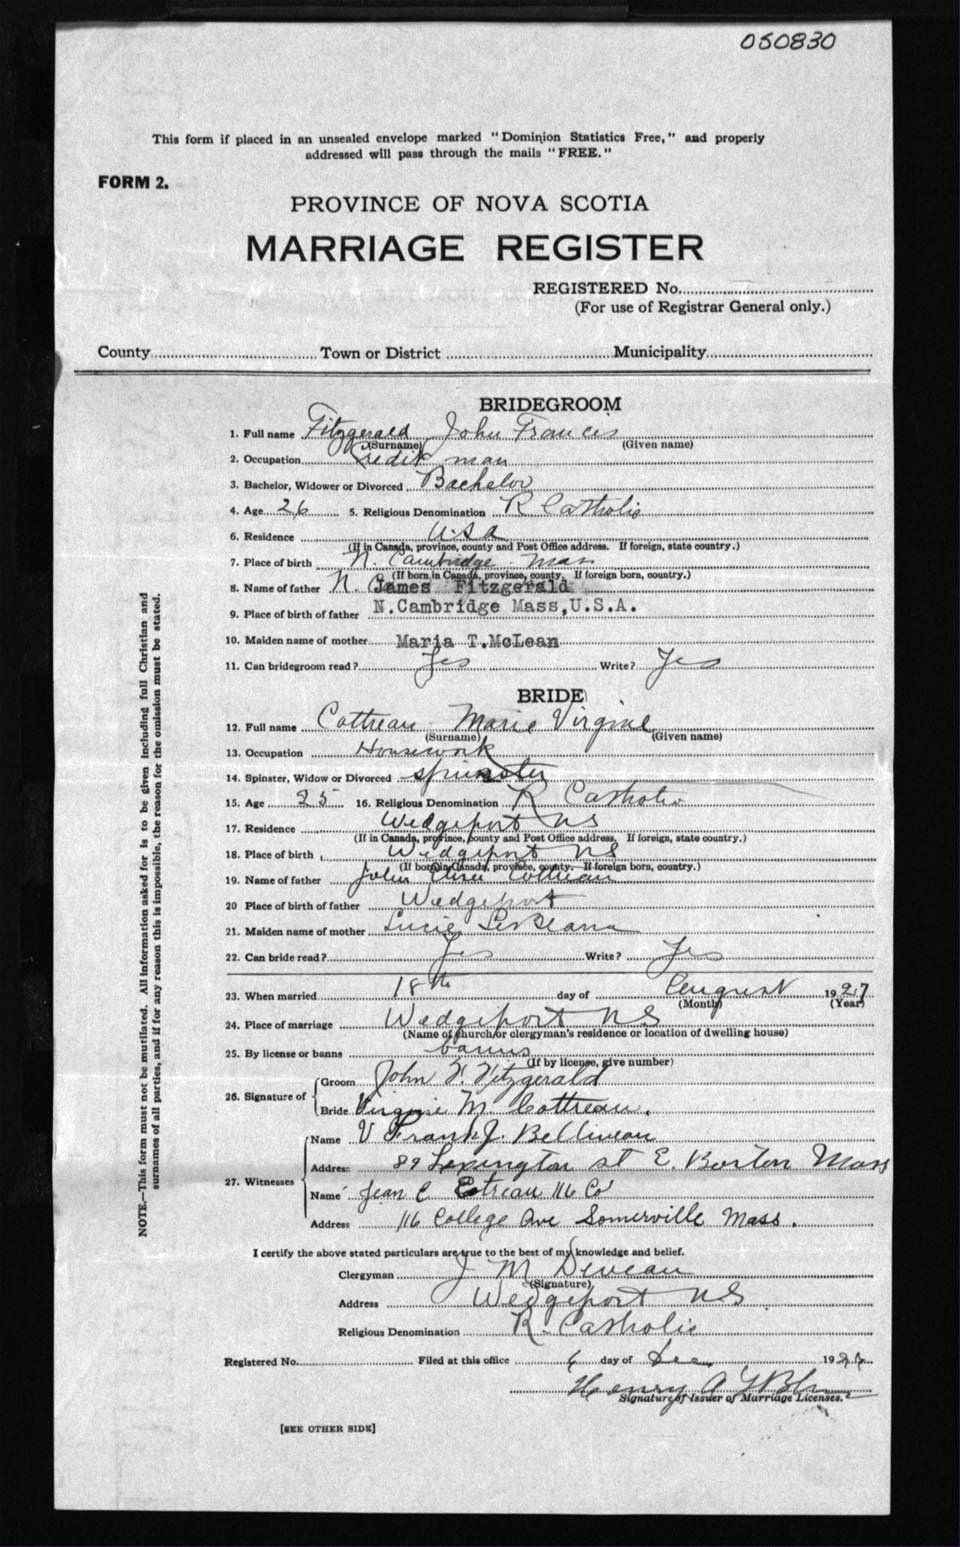 050830
This form if placed in an unsealed envelope marked "Dominion Statistics Free," and properly
addressed will pass through the mails "FREE."
FORM 2.
PROVINCE OF NOVA SCOTIA
MARRIAGE REGISTER
REGISTERED No.
(For use of Registrar General only.)
County Town or District Municipality
BRIDEGROOM
1. Full name Fitzgerald John Francis
(Surname) (Given name)
2. Occupation Credit man
3. Bachelor, Widower or Divorced Bachelor
4. Age 26 5. Religious Denomination R Catholic
6. Residence U.S.A
(If in Canada, province, county and Post Office address. If foreign, state country.)
7. Place of birth N. Cambridge. Mass
(If born in Canada, province, county. If foreign born, country.)
8. Name of father N. James Fitzgerald
9. Place of birth of father N.Cambridge Mass,U.S.A.
10. Maiden name of mother Maria T.McLean
11. Can bridegroom read? Yes Write? Yes
BRIDE
12. Full name Cottreau Marie Virginie
(Surname) (Given name)
13. Occupation Housework
14. Spinster, Widow or Divorced spinster
15. Age 25 16. Religious Denomination R Catholic
17. Residence Wedgeport NS
(If in Canada, province, county and Post Office address. If foreign, state country.)
18. Place of birth Wedgeport NS
(If born in Canada, province, county. If foreign born, country.)
19. Name of father Cottreau
20 Place of birth of father Wedgeport
21. Maiden name of mother Lucie
22. Can bride read? Yes Write? Yes
23. When married 18th day of August 1927
(Month) (Year)
24. Place of marriage Wedgeport NS
(Name of church or clergyman's residence or location of dwelling house)
25. By license or banns banns
(If by license, give number)
26. Signature of Groom John F. Fitzgerald
Bride Virginie M. Cottreau.
27. Witnesses Name V Frank J. Belliveau
Address 89 Lexington st E. Boston Mass
Name Jean C Cotreau 116 Co
Address 116 College Ave Somerville Mass.
I certify the above stated particulars are true to the best of my knowledge and belief.
Clergyman J M Deveau
(Signature)
Address Wedgeport NS
Religious Denomination R. Catholic
Registered No. Filed at this office 6 day of Dec 192
Henry A
Signature of Issuer of Marriage Licenses.
[SEE OTHER SIDE]
NOTE.—This form must not be mutilated. All information asked for is to be given including full Christian and
surnames of all parties, and if for any reason this is impossible, the reason for the omission must be stated.